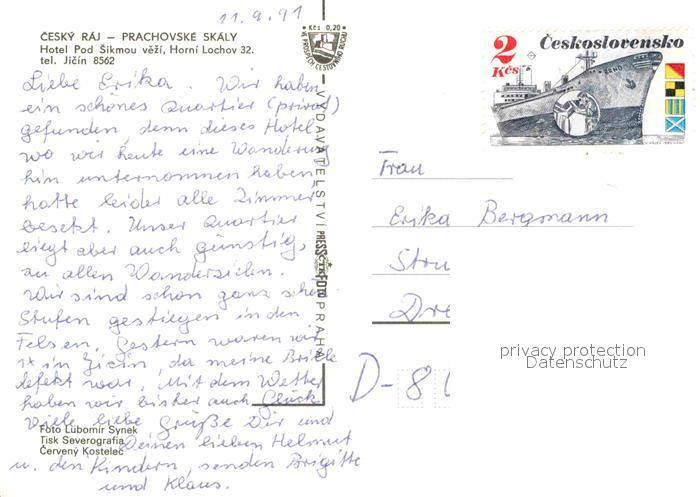 11.9.91
ČESKÝ RÁJ — PRACHOVSKÉ SKÁLY
Hotel Pod Šikmou věží, Horní Lochov 32.
tel. Jičín 8562
Liebe Erika. Wir haben
ein schönes Quartier (privat)
gefunden, denn dieses Hotel,
wo wir heute eine Wanderung
hin unternommen haben
hatte leider alle Zimmer
besetzt. Unser Quartier
liegt aber auch günstig,
zu allen Wanderzielen.
Wir sind schon ganz schön
Stufen gestiegen in den
Felsen. Gestern waren wir
1x in Jicin, da meine Brille
defekt war. Mit dem Wetter
haben wir bisher auch Glück
Viele liebe Grüße Dir und
Deinen lieben Helmut
u. den Kindern, senden Brigitte
und Klaus.
Foto Lubomír Synek
Tisk Severografia
Červený Kostelec
Kčs 0,20
VYDAVATELSTVÍ PRESSFOTO PRAHA
ČTK
2 Kčs
Československo
BRNO
Frau
Erika Bergmann
Stru
Dre
D-8
privacy protection
Datenschutz